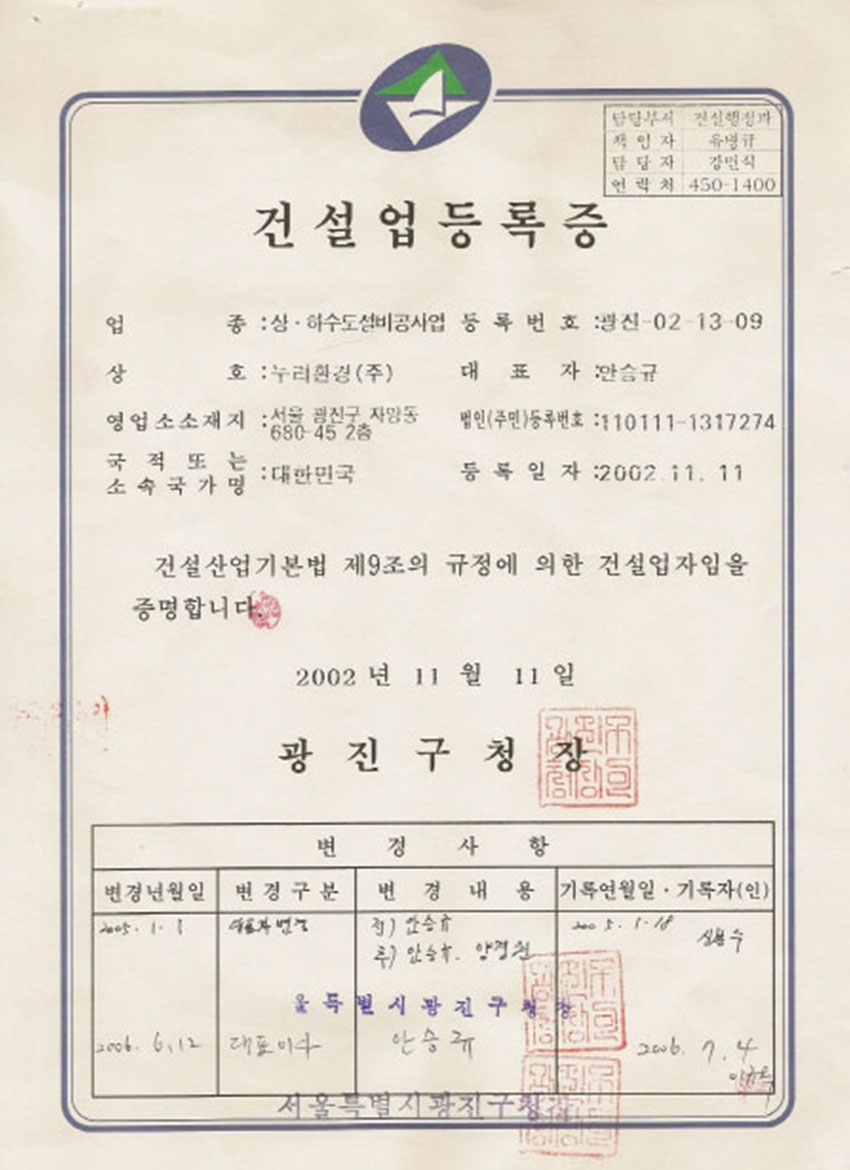 담당부서 건설행정과
책임자 유명규
담당자 강민식
연락처 450-1400
건설업등록증
업 종 : 상·하수도설비공사업 등록번호 : 광진-02-13-09
상 호 : 누리환경(주) 대표자 : 안승규
영업소소재지 : 서울 광진구 자양동 680-45 2층 법인(주민)등록번호 : 110111-1317274
국적 또는 소속국가명 : 대한민국 등록일자 : 2002.11.11
건설산업기본법 제9조의 규정에 의한 건설업자임을
증명합니다.
2002년 11월 11일
광진구청장
변경사항
변경년월일 변경구분 변경내용 기록연월일·기록자(인)
2005. 1. 1 대표자변경 전) 안승규 2005. 1. 18
후) 안승규.
울특별시광진구청장
2006. 6, 12 안승규 2006. 7. 4
서울특별시광진구청장